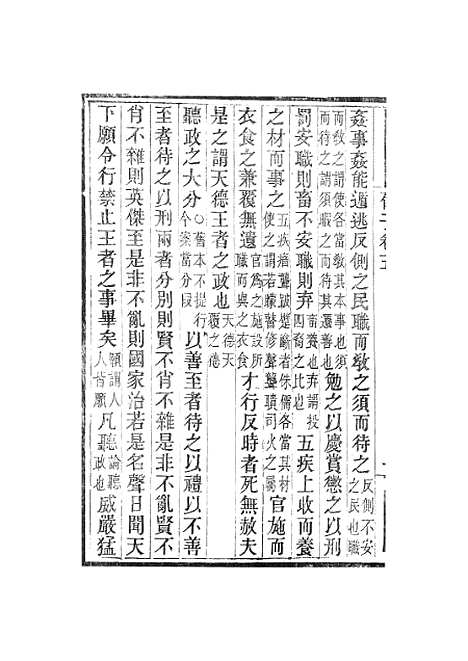 姦事姦能遁逃反側之民職而敎之須而待之反側不安之民也職
而敎之謂使各當敎其本事也須而待之謂須暇之而待其遷善也勉之以慶賞懲之以刑
罰安職則畜不安職則弃畜養也弃謂投四裔之比也五疾上收而養
之材而事之五疾瘖聾跛躄斷者侏儒各當其材使之謂若矇瞽修聲聾聵司火之屬官施而
衣食之兼覆無遺官爲之施設所職而與之衣食才行反時者死無赦夫
是之謂天德王者之政也天德天覆之德
聽政之大分○舊本不提行今案當分段以善至者待之以禮以不善
至者待之以刑兩者分別則賢不肖不雜是非不亂賢不
肖不雜則英傑至是非不亂則國家治若是名聲日聞天
下願令行禁止王者之事畢矣願謂人皆願凡聽論聽政也威嚴猛